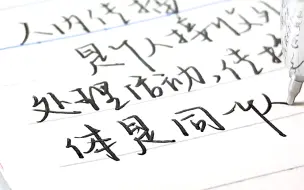 人内传播
是个人接收外
处理活动,传播
体是同一